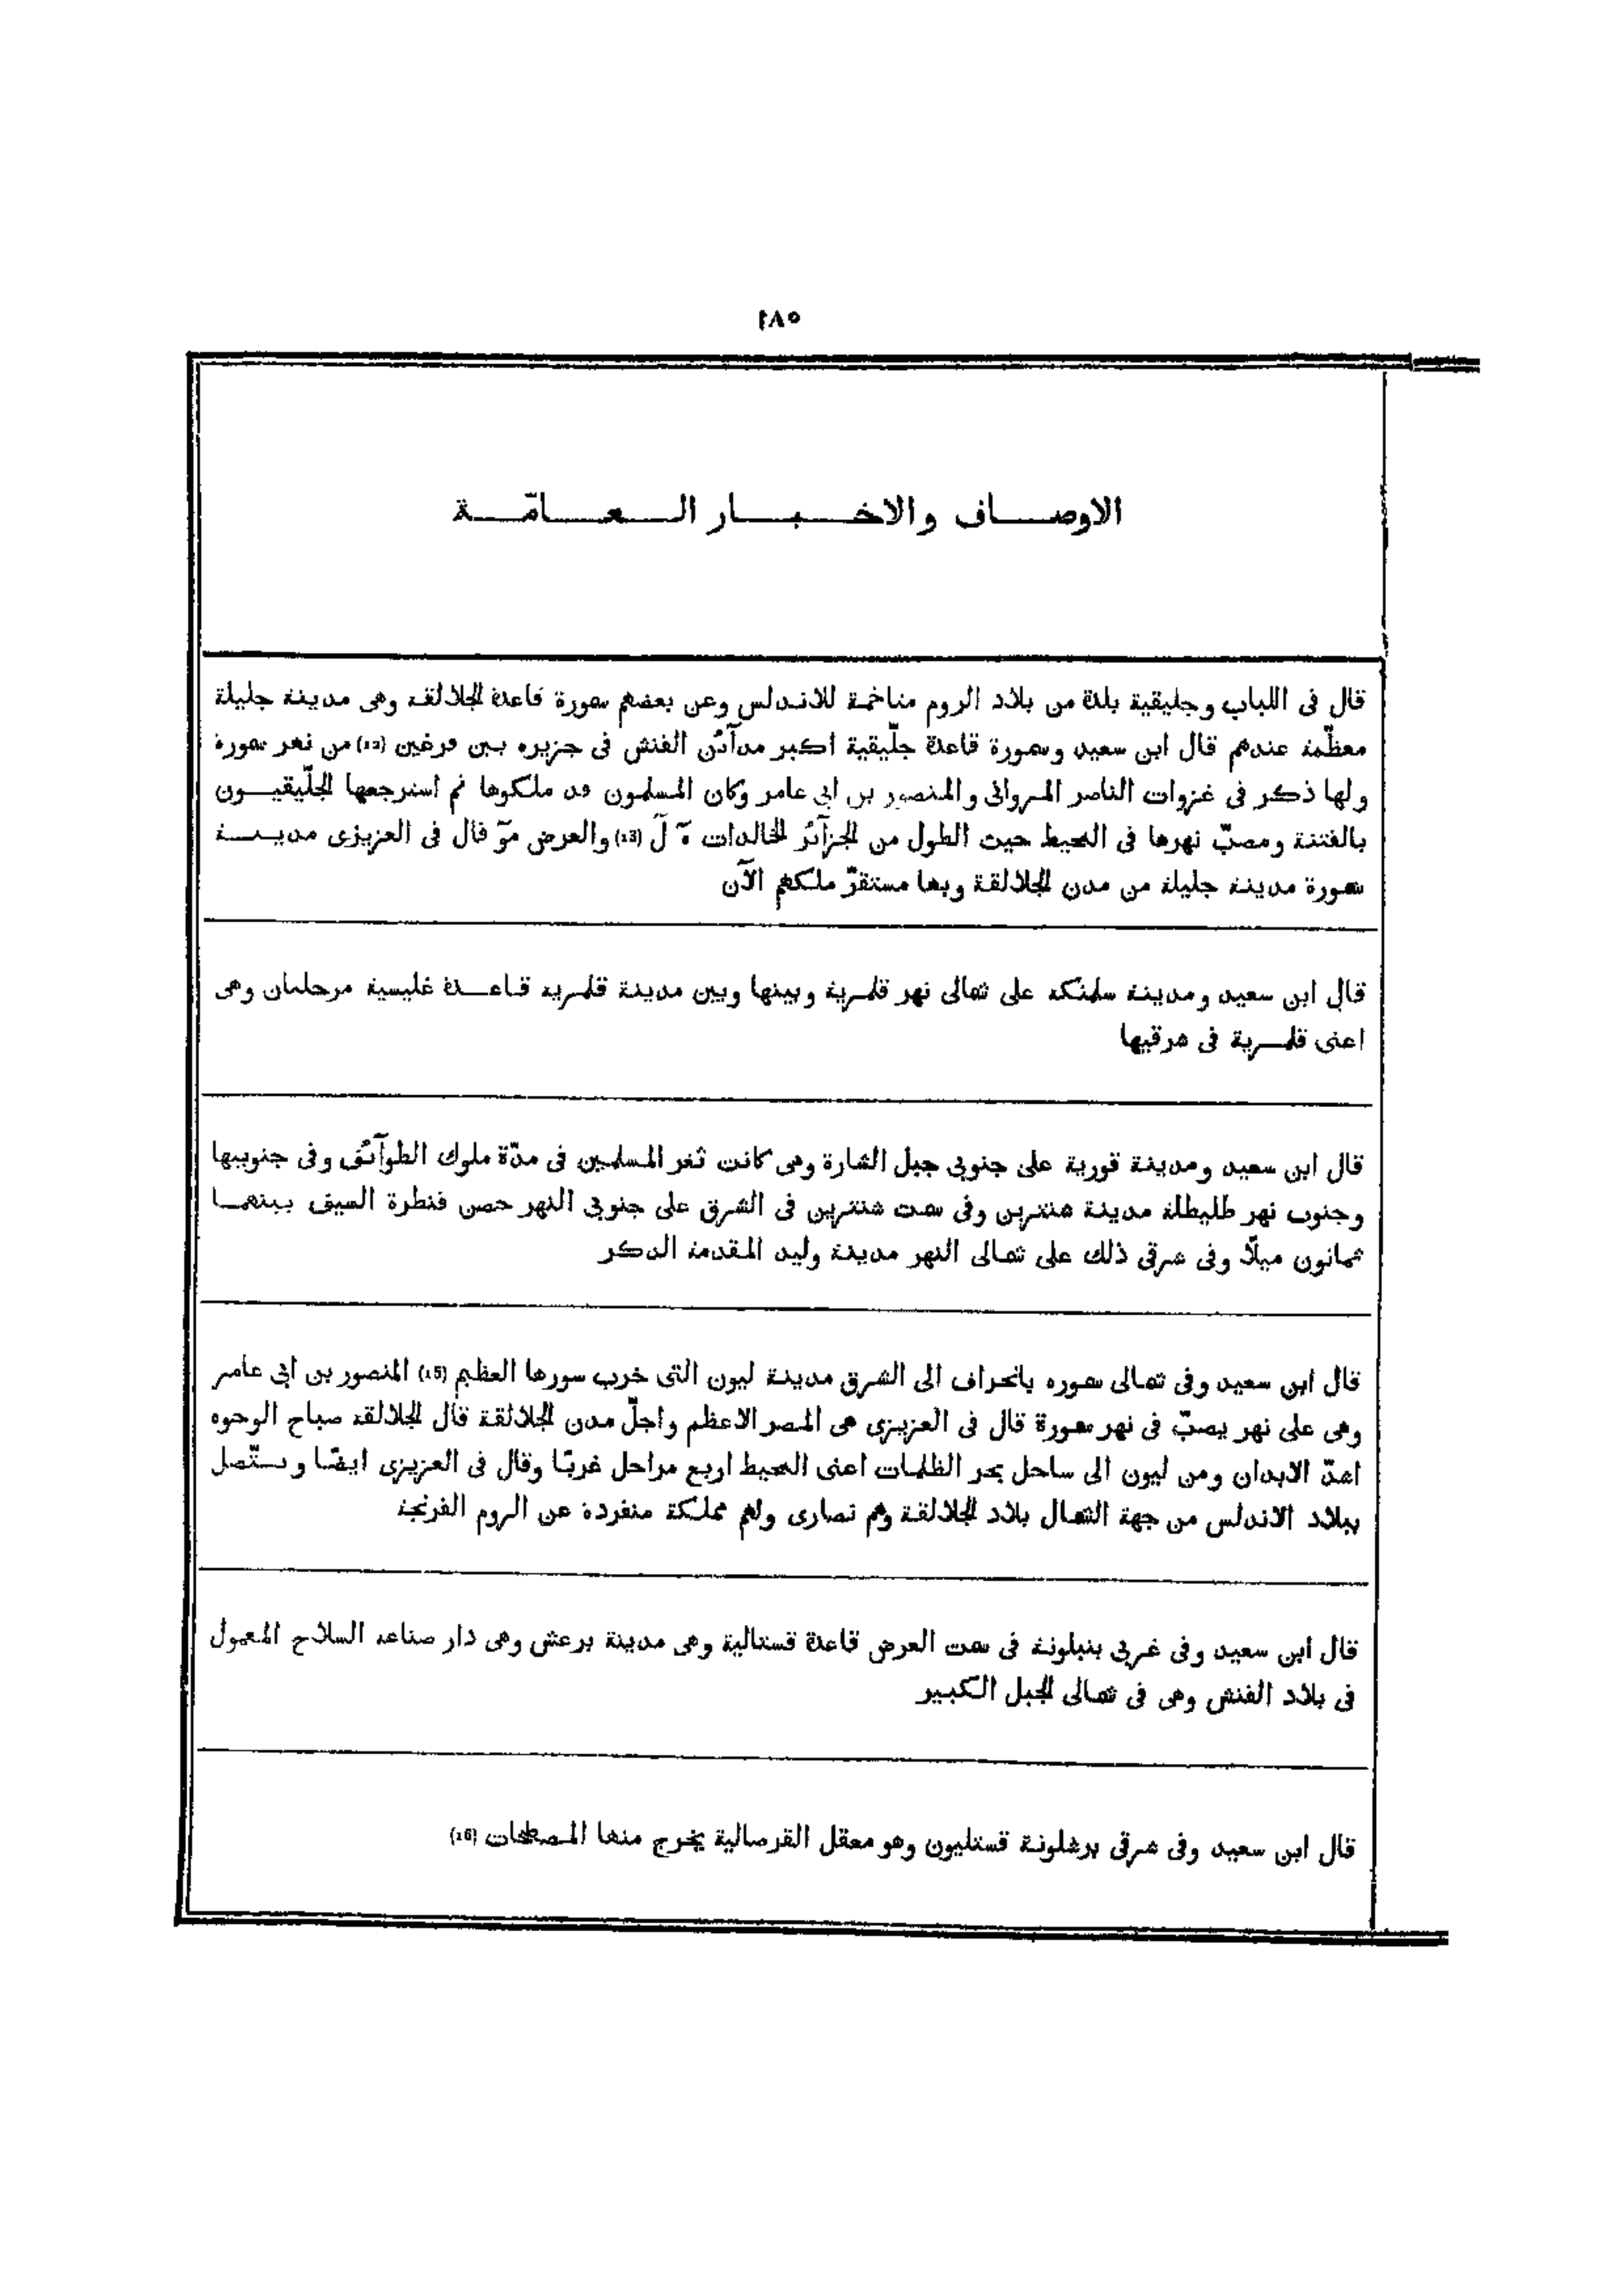 ١٨٥
الاوصاف والاخبار العامّة
قال فى اللباب وجليقية بلدة من بلاد الروم متاخمة للاندلس وعن بعضهم سمورة قاعدة الجلالقة وهى مدينة جليلة
معظّمة عندهم قال ابن سعيد وسمورة قاعدة جلّيقية اكبر مدآئن الفنش فى جزيره بين فرغين (12) من نهر سمورة
ولها ذكر فى غزوات الناصر المروانى والمنصور بن ابى عامر وكان المسلمون قد ملكوها ثم استرجعها الجلّيقيون
بالفتنة ومصبّ نهرها فى المحيط حيث الطول من الجزآئر الخالدات ة ل (13) والعرض مو قال فى العزيزى مدينة
سمورة مدينة جليلة من مدن الجلالقة وبها مستقرّ ملكهم الآن
قال ابن سعيد ومدينة سلمنكه على شمالى نهر قلمرية وبينها وبين مدينة قلمريه قاعدة غليسية مرحلتان وهى
اعنى قلمرية فى شرقيها
قال ابن سعيد ومدينة قورية على جنوبى جبل الشارة وهى كانت ثغر المسلمين فى مدّة ملوك الطوآئف وفى جنوبيها
وجنوب نهر طليطلة مدينة شنترين وفى سمت شنترين فى الشرق على جنوبى النهر حصن قنطرة السيف بينهما
ثمانون ميلًا وفى شرقى ذلك على شمالى النهر مدينة وليد المقدمة الذكر
قال ابن سعيد وفى شمالى سموره بانحراف الى الشرق مدينة ليون التى خرب سورها العظيم (15) المنصور بن ابى عامر
وهى على نهر يصبّ فى نهر سمورة قال فى العزيزى هى المصر الاعظم واجلّ مدن الجلالقة قال الجلالقه صباح الوجوه
اشدّ الابدان ومن ليون الى ساحل بحر الظلمات اعنى المحيط اربع مراحل غربًا وقال فى العزيزى ايضًا ويتّصل
ببلاد الاندلس من جهة الشمال بلاد الجلالقة وهم نصارى ولهم مملكة منفردة عن الروم الفرنجة
قال ابن سعيد وفى غربى بنبلونة فى سمت العرض قاعدة قستالية وهى مدينة برغش وهى دار صناعه السلاح المعمول
فى بلاد الفنش وهى فى شمالى الجبل الكبير
قال ابن سعيد وفى شرقى برشلونة قستليون وهو معقل القرصالية يخرج منها المصطحات (16)